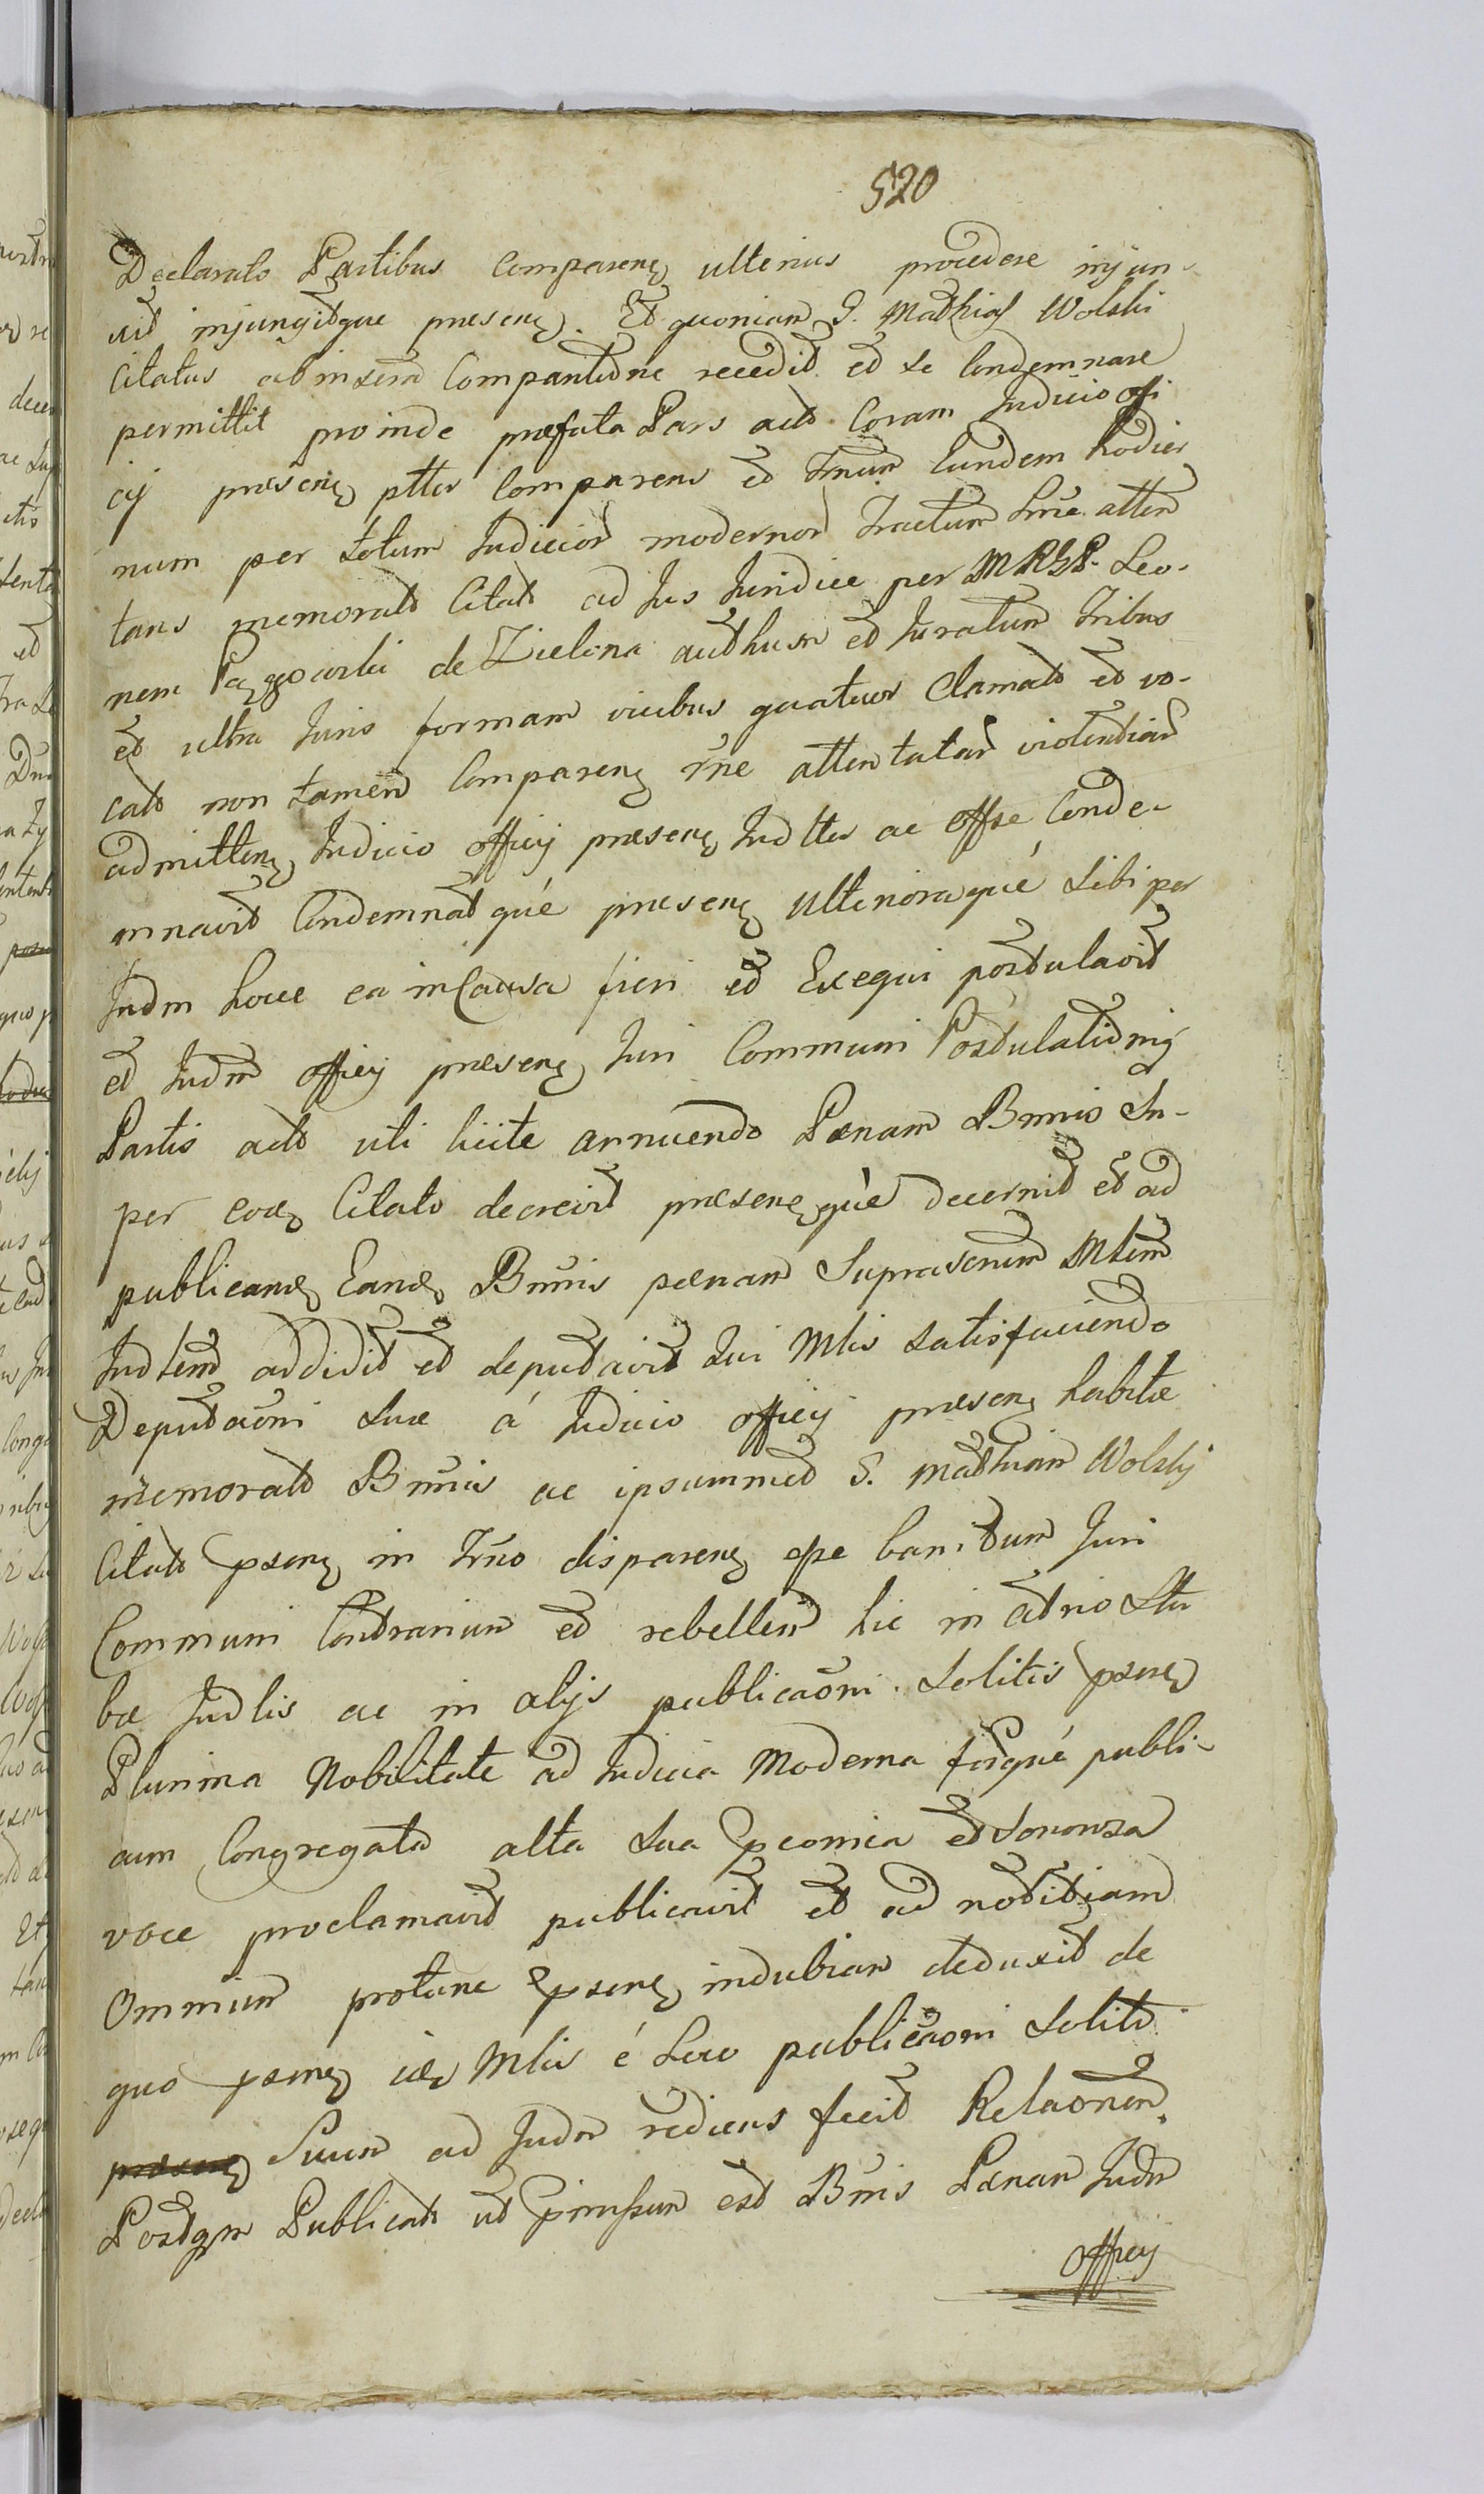 520
Declarato Partibus Comparenς ulterius procedere injun-
xit injungitque presenς. Et quoniam G. Mathias Wolski
Citatus ab inserta Comparitione recedit et se Condemnare
permittit proinde præfata Pars acto Coram Judicio offi
cij præsenς ptter Comparens et Tmum Eundem hodier
num per totum Judicior modernor Tractum attten
tans memorato Citato ad Jus Juridice per MRGP. Leo-
nem de Zielona authum et Juratum Tribus
et ultra Juris formam vicibus quatuor Clamato et vo-
cato non tamen Comparenς rne attentatam violentiam
admittenς Judicio officij præsenς Judtter ac offse Conde-
mnavit Condemnatqué presenς Ulterioraqué Sibi per
Judm hocce ea in Causa fieri et Exequi postulavit
et Judm officij præsenς Juri Communi Postulationiς
Partis acto uti licite annuendo Pænam Bnnis Su-
per eoς Citato decrevit præsenςqué decernit et ad
publicanς Eanς Bnnis pænam Suprascrium Mlem
Judlem addidit et deputavit Qui Mlis satisfaciendo
Deputaoni Suæ á Judicio officij præsenς habitæ
memorato Bnnis ac ipsummet G. Mathiam Wolskij
Citato psenς in Tmo disparenς esse banitum Juri
Communi Contrarium et rebellem hic in atrio Stu
bæ Judlis ac in alijs publicaoni Solitis psenς
Plurima Nobilitate ad Judicia Moderna forqué publi-
cum Congregata alta Sua et Sonorosa
voce proclamavit publicavit et ad notitiam
Omnium protunc psenς indubiam deduxit de
quo psenς Mlis é Loco publicaoni Solito
præsenς Suum ad Judm rediens fecit Relaonem.
Postqm Publicato ut pmissum est Bnis Pænam Judm
officij